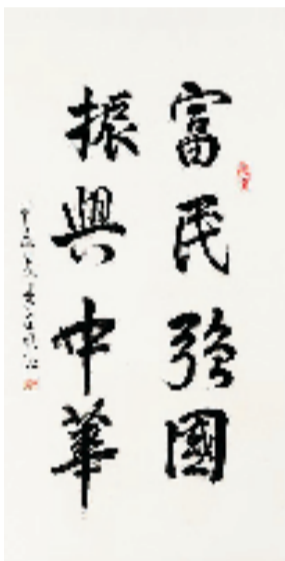 富民強國
振興中華